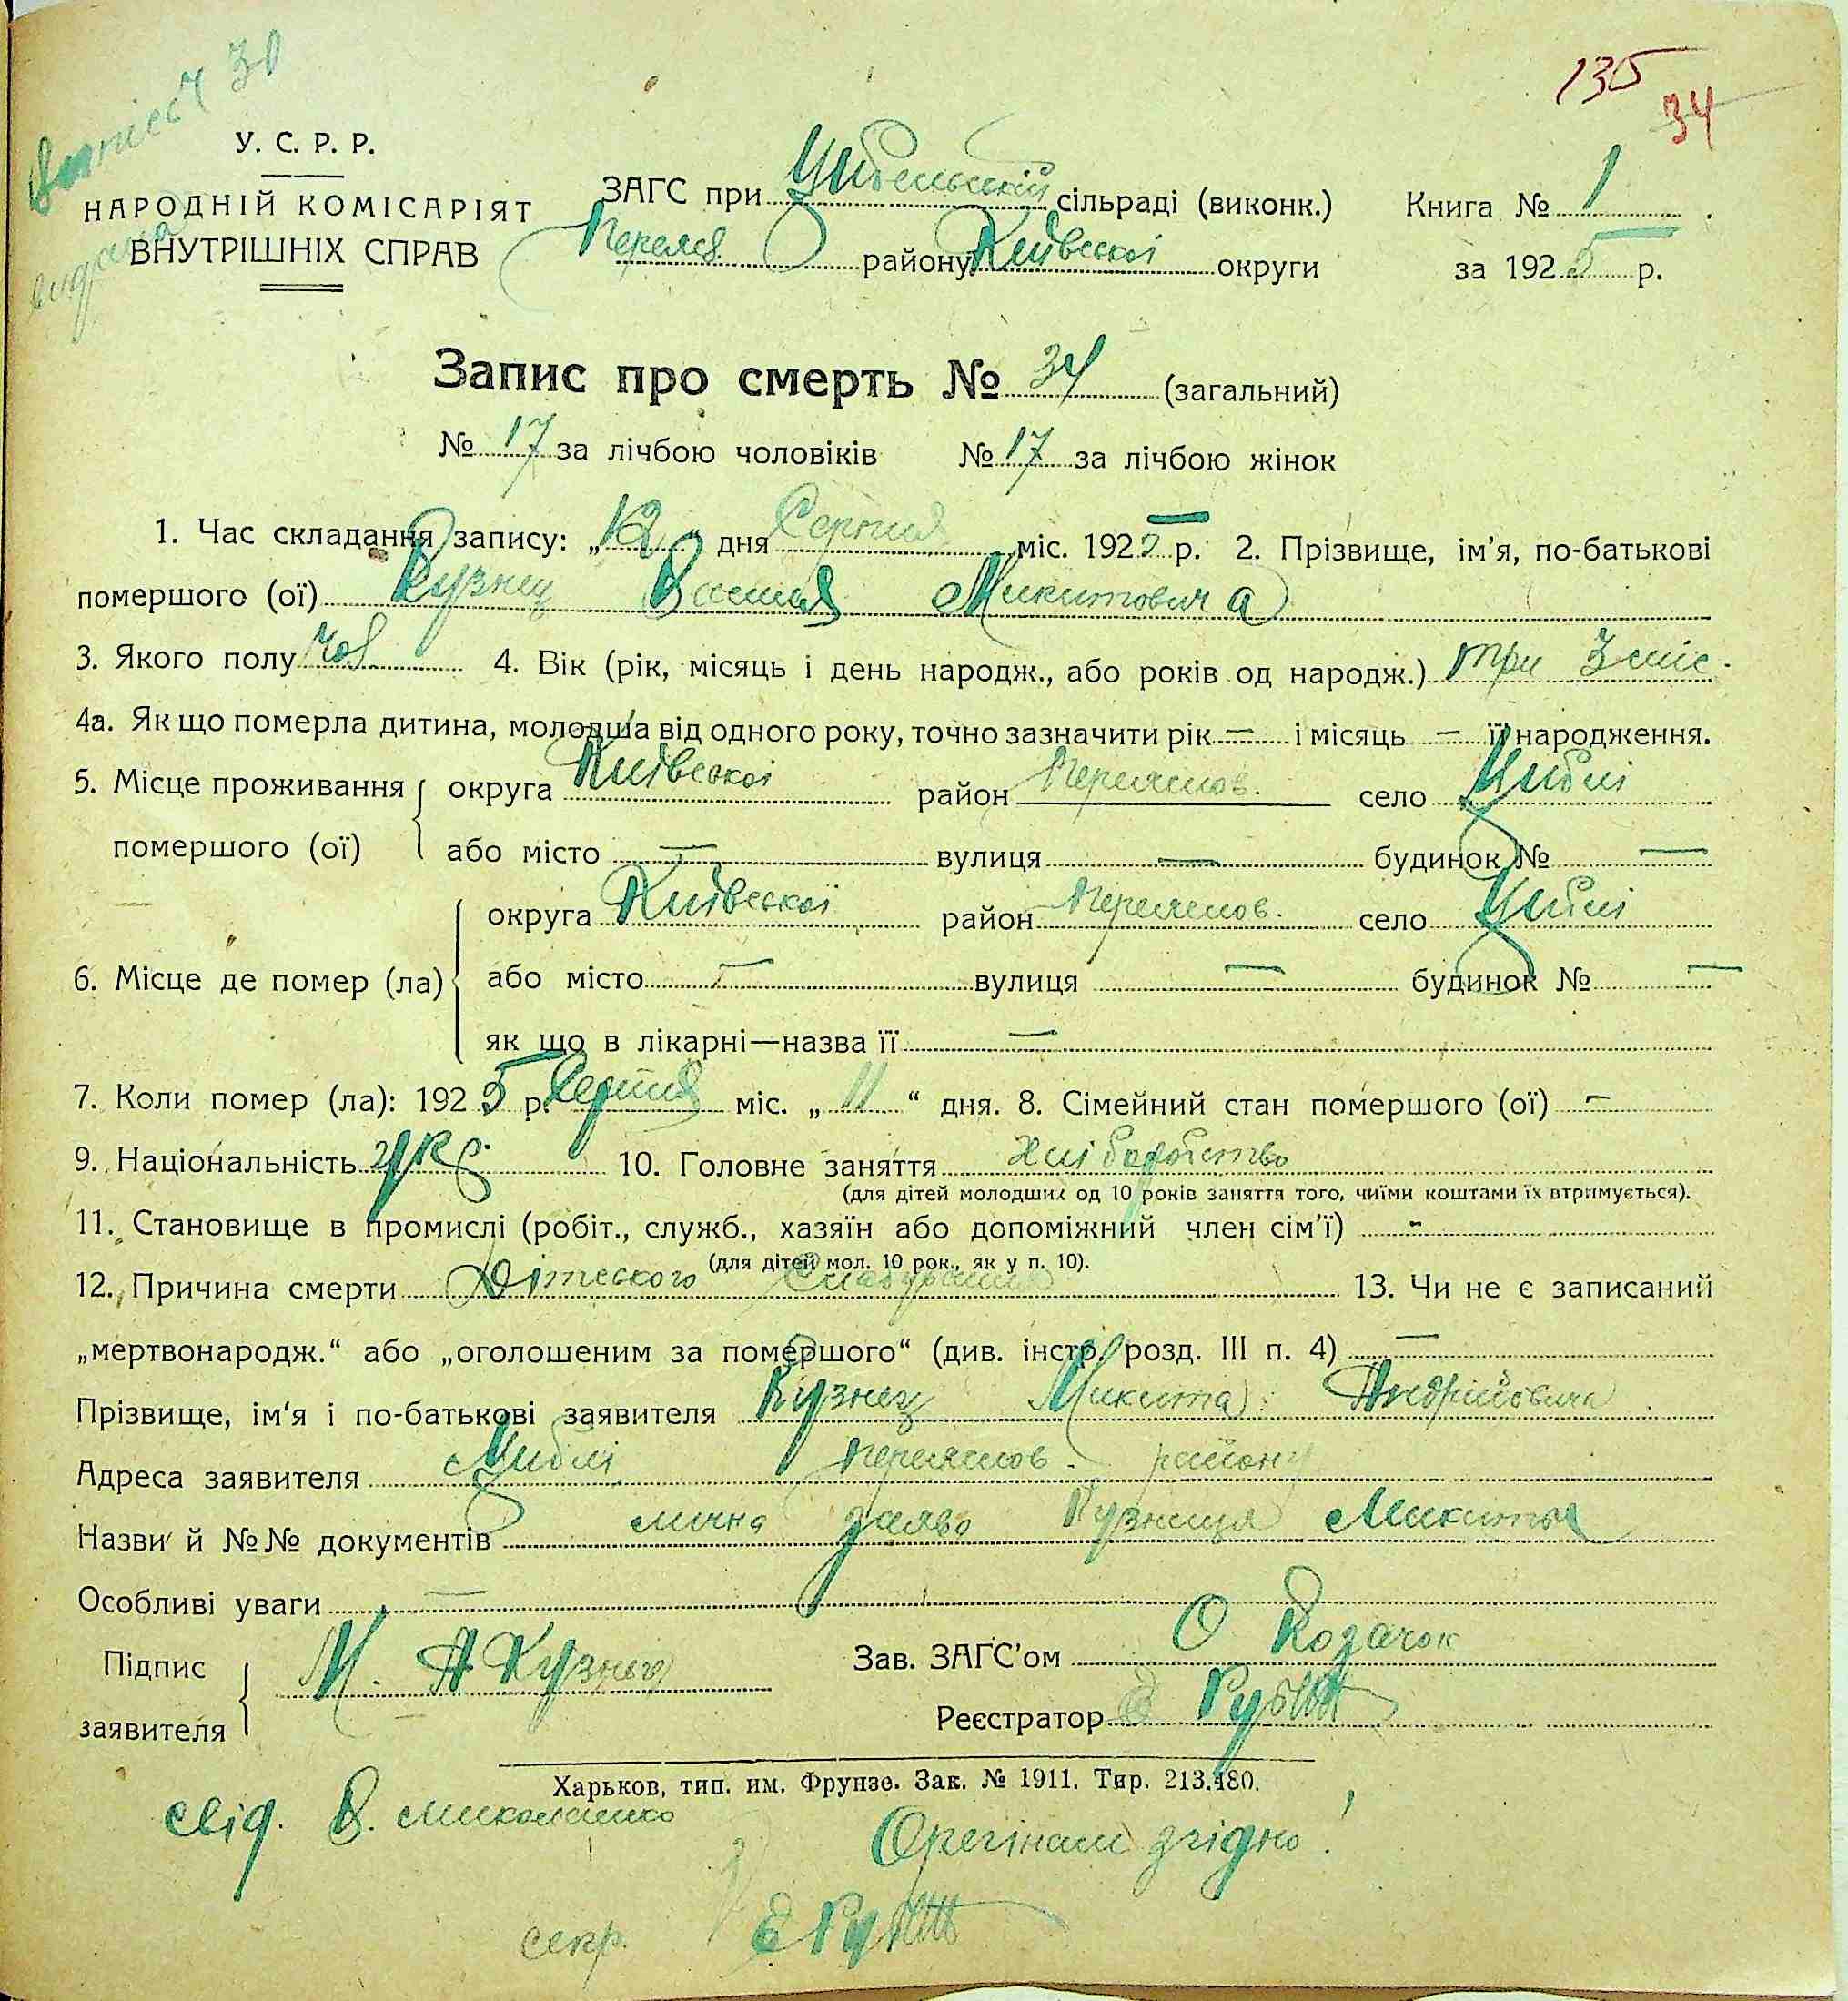 135
34
У. С. Р. Р.
НАРОДНІЙ КОМІСАРІЯТ
ВНУТРІШНІХ СПРАВ
ЗАГС при Цибельській сільраді (виконк.) Книга № 1
Переясл. району Київської округи за 1925 р.
Запис про смерть № 34 (загальний)
№ 17 за лічбою чоловіків № 17 за лічбою жінок
1. Час складання запису: „12" дня Серпня міс. 1925 р. 2. Прізвище, ім’я, по-батькові
помершого (ої) Кузнец Василя Микитовича
3. Якого полу чол 4. Вік (рік, місяць і день народж., або років од народж.) три
4а. Як що померла дитина, молодша від одного року, точно зазначити рік — і місяць — її народження.
5. Місце проживання округа Київської район Переяслов. село Циблі
помершого (ої) або місто — вулиця — будинок № —
округа Київської район Переяслов. село Циблі
6. Місце де помер (ла) або місто — вулиця — будинок № —
як що в лікарні—назва її —
7. Коли помер (ла): 1925 р. Серпня міс. „11“ дня. 8. Сімейний стан помершого (ої) —
9. Національність укр. 10. Головне заняття хліборобство
(для дітей молодших од 10 років заняття того, чиїми коштами їх втримується).
11. Становище в промислі (робіт., служб., хазяїн або допоміжний член сім’ї) -
(для дітей мол. 10 рок., як у п. 10).
12. Причина смерти Дітеского 13. Чи не є записаний
„мертвонародж.“ або „оголошеним за помершого“ (див. інстр. розд. III п. 4) —
Прізвище, ім‘я і по-батькові заявителя Кузнец Микита Андрійовича
Адреса заявителя Циблі Переяслов. району
Назви й №№ документів лична заява Кузниця Микити
Особливі уваги —
Підпис М. А Кузнец Зав. ЗАГС’ом О Козачок
заявителя Реєстратор
Харьков, тип. им. Фрунзе. Зак. № 1911. Тир. 213.480.
свід. В. Миколаенко
Орегінал згідно!
секр.